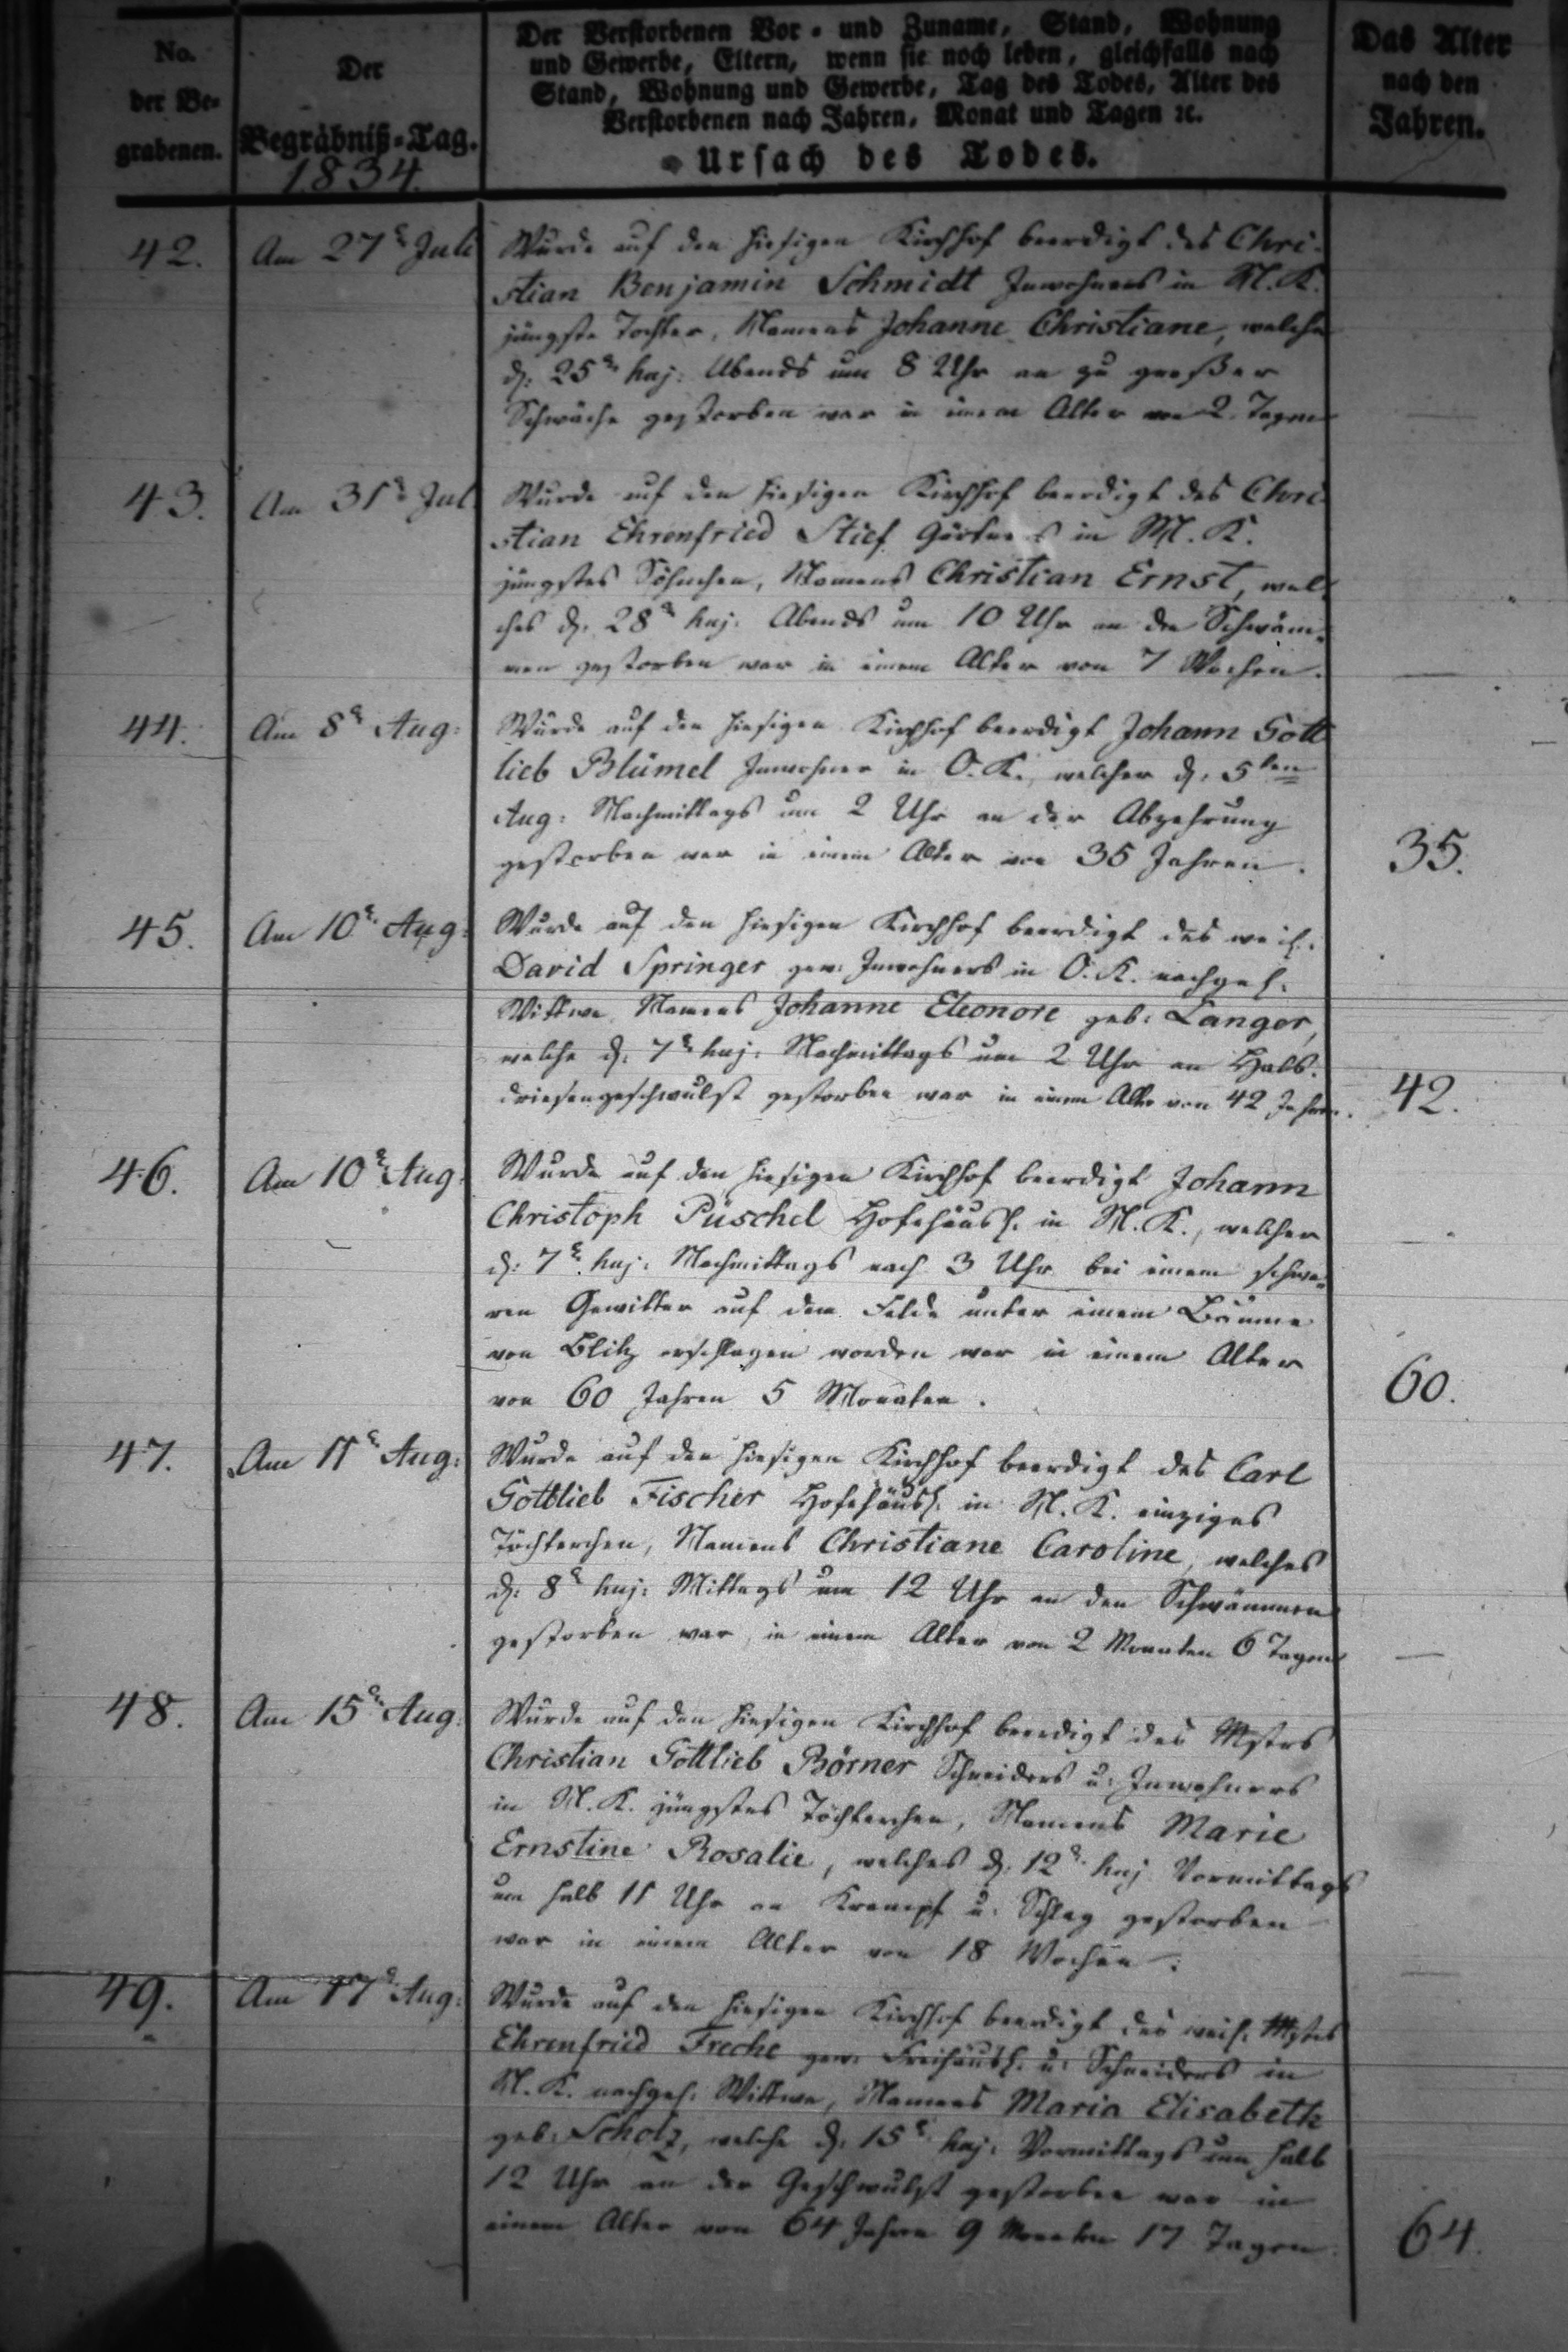 No.
der Be-
grabenen.
Der
Begräbniß-Tag.
1834.
Der Verstorbenen Vor- und Zuname, Stand, Wohnung
und Gewerbe, Eltern, wenn sie noch leben, gleichfalls nach
Stand, Wohnung und Gewerbe, Tag des Todes, Alter des
Verstorbenen nach Jahren, Monat und Tagen ꝛc.
Ursach des Todes.
Das Alter
nach den
Jahren.
42.
Am 27t Juli
Wurde auf den hiesigen Kirchhof beerdigt des Chri-
stian Benjamin Schmidt Inwohners in M. K.
jüngste Tochter, Namens Johanne Christiane, welche
d. 25t huj: Abends um 8 Uhr an zu großer
Schwäche gestorben war in einem Alter von 2. Tagen
43.
Am 31t Jul
Wurde auf den hiesigen Kirchhof beerdigt des Chri
stian Ehrenfried Stief Gärtners in M. K.
jüngstes Söhnchen, Namens Christian Ernst, wel-
ches d. 28t huj: Abends um 10 Uhr an den Schwäm-
men gestorben war in einem Alter von 7 Wochen.
44.
Am 8t Aug:
Wurde auf den hiesigen Kirchhof beerdigt Johann Gott
lieb Blümel Inwohner in O. K., welcher d. 5ten
Aug: Nachmittags um 2 Uhr an der Abzehrung
gestorben war in einem Alter von 35 Jahren.
35.
45.
Am 10t Aug:
Wurde auf den hiesigen Kirchhof beerdigt des weil.
David Springer gew: Inwohners in O. K. nachgel.
Wittwe, Namens Johanne Eleonore geb: Langer,
welche d. 7t huj: Nachmittags um 2 Uhr an Hals-
driesengeschwulst gestorben war in einem Alter von 42 Jahren.
42.
46.
Am 10t Aug:
Wurde auf den hiesigen Kirchhof beerdigt Johann
Christoph Püschel Hofehäusl. in M. K., welcher
d: 7t huj: Nachmittags nach 3 Uhr bei einem schwe-
ren Gewitter auf dem Felde unter einem Baume
von Blitz erschlagen worden war in einem Alter
von 60 Jahren 5 Monaten.
60.
47.
Am 11t Aug:
Wurde auf den hiesigen Kirchhof beerdigt des Carl
Gottlieb Fischer Hofehäusl. in M. K. einziges
Töchterchen, Namens Christiane Caroline, welches
d: 8t huj: Mittags um 12 Uhr an den Schwämmen
gestorben war, in einem Alter von 2 Monaten 6 Tagen
48.
Am 15t Aug:
Wurde auf den hiesigen Kirchhof beerdigt des Mstrs
Christian Gottlieb Börner Schneiders u. Inwohners
in M. K. jüngstes Töchterchen, Namens Marie
Ernstine Rosalie, welches d: 12t huj Vormittags
um halb 11 Uhr an Krampf u. Schlag gestorben
war in einem Alter von 18 Wochen.
49.
Am 17t Aug:
Wurde auf den hiesigen Kirchhof beerdigt des weil. Mstrs
Ehrenfried Freche gew. Freihäusl. u. Schneiders in
M. K. nachgel. Wittwe, Namens Maria Elisabeth
geb: Scholz, welche d: 15t huj: Vormittags um halb
12 Uhr an der Geschwulst gestorben war in
einem Alter von 64 Jahren 9 Monaten 17 Tagen.
64.